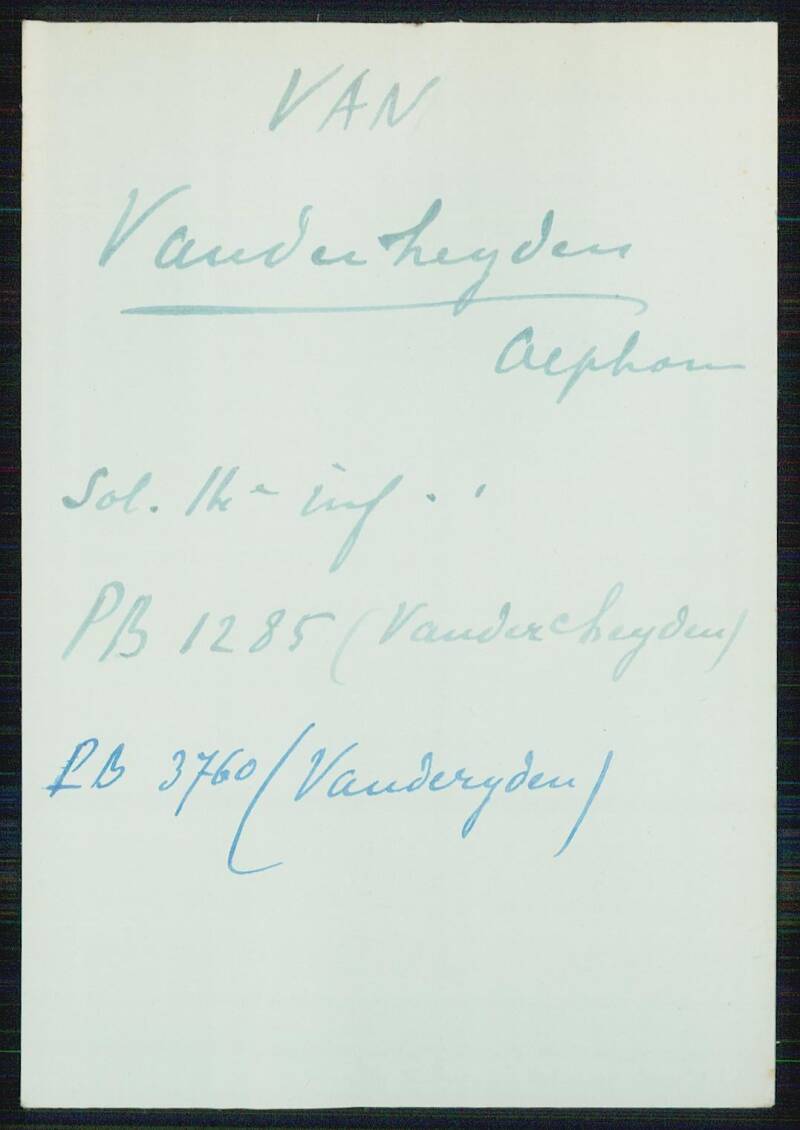 VAN
Vanderheyden
Alphons
Sol. 14e inf.
PB 1285 (Vandercheyden)
PB 3760 (Vanderyden)